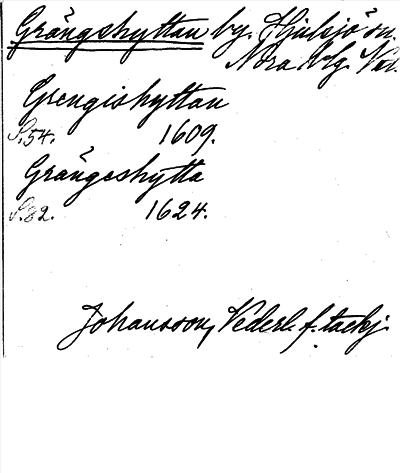 Grängshyttan by. Hjulsjö sn.
Nora blg. Vstl.
Grengishyttan
S.54. 1609.
Grängeshytta
S.82. 1624.
Johansson, Vederl. f. tackj.